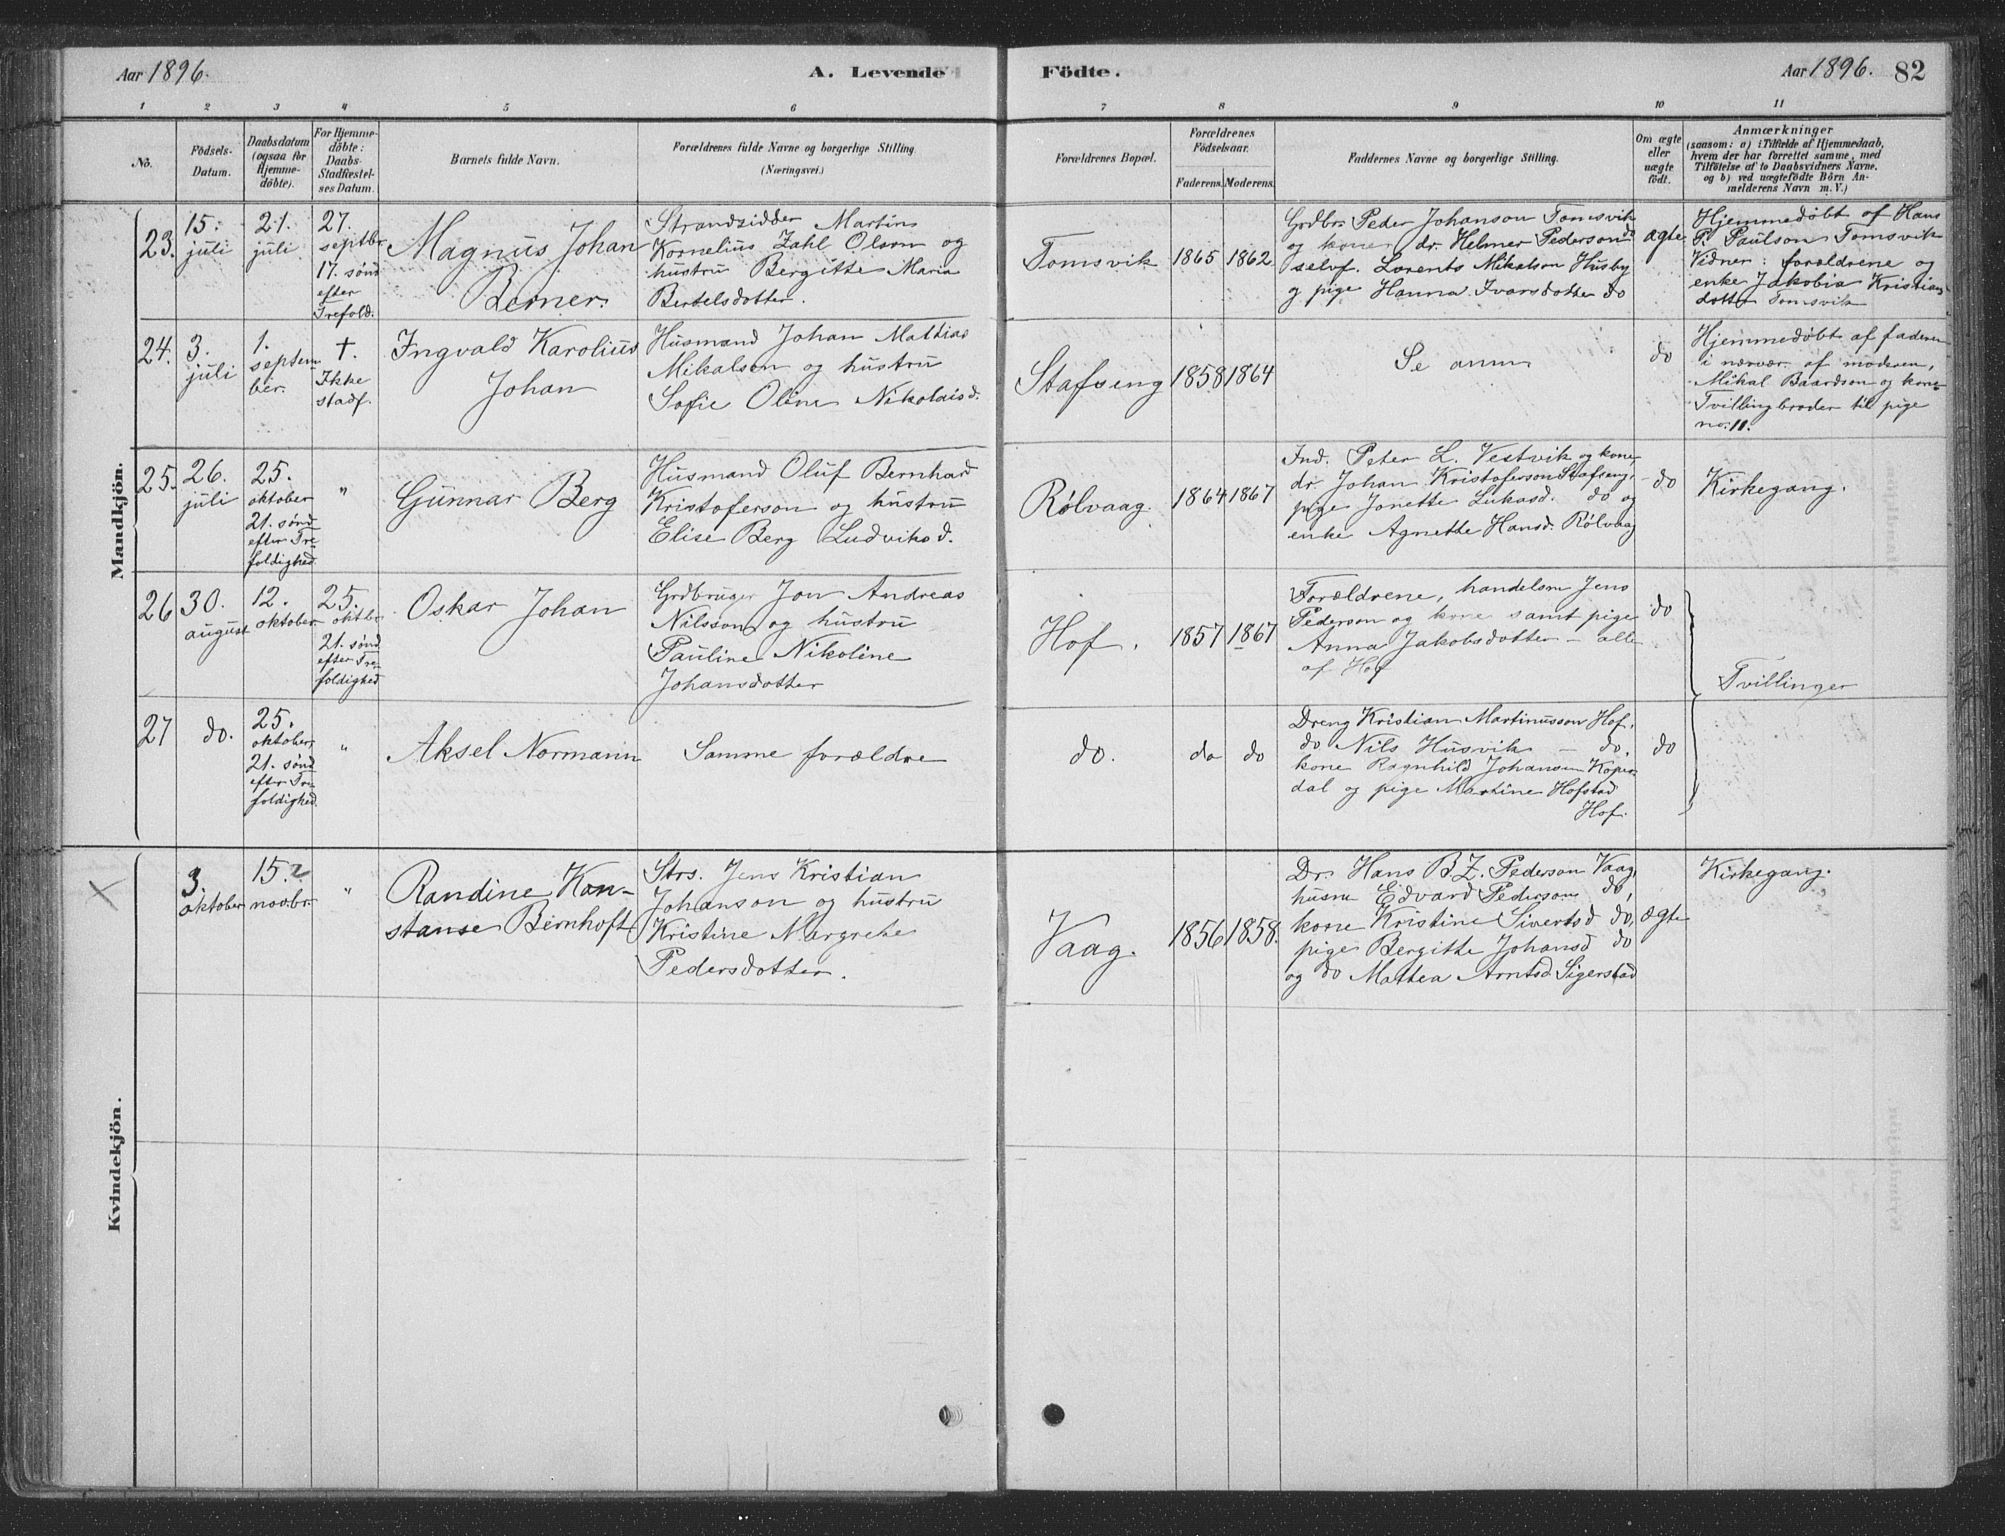 Aar 1896. A. Levende
Födte. Aar 1896. 82
1 2 3 4 5 6
7 8 9 10 11
No.
Födsels-
Datum.
Daabsdatum
(ogsaa for
Hjemme-
döbte).
For Hjemme-
döbte:
Daabs-
Stadfæstel-
ses Datum.
Barnets fulde Navn.
Forældrenes fulde Navne og borgerlige Stilling.
(Næringsvei.)
Forældrenes Bopæl.
Forældrenes
Födselsaar.
Faderens. Moderens.
Faddernes Navne og borgerlige Stilling.
Om ægte
eller
uægte
födt.
Anmærkninger
(saasom: a) i Tilfælde af Hjemmedaab,
hvem der har forrettet samme, med
Tilföielse af to Daabsvidners Navne.
og b) ved uægtefödte Börn An-
melderens Navn m. V.)
Mandkjön.
23.
15.
juli
21.
juli
27.
septbr.
17. sönd
efter
Trefold.
Magnus Johan
Berner.
Strandsidder Martin
Kornelius Zahl Olsen og
hustru Bergitte Maria
Bertelsdotter.
Tomsvik 1865 1862
Grdbr. Peder Johanson Tomsvik
og kone, dr. Helmer Pederson do
selvf. Lorents Mikalson Husby
og pige Hanna Ivarsdotter do
ægte
Hjemmedøbt af Hans
P. Paulson Tomsvik
Vidner: forældrene og
enke Jakobia Kristians
dotter Tomsvik
24.
3.
juli
1.
septem
ber.
†.
Ikke
stadf.
Ingvald Karolius
Johan
Husmand Johan Mathias
Mikalson og hustru
Sofie Oline Nikolaisd.
Stafseng 1858 1864
Se anm
do
Hjemmedøbt af faderen
i nærvær. af moderen,
Mikal Baardson og kone
Tvillingbroder til pige
no. 11.
25.
26.
juli
25.
oktober
21. sönd
efter Tre
foldighed
"
Gunnar Berg
Husmand Oluf Bernhard
Kristoferson og hustru
Elise Berg Ludviksd.
Rølvaag. 1864 1867
Ind. Peter L. Vestvik og kone,
dr. Johan Kristoferson Stafseng,
pige Jonette Lukasd. do og
enke Agnette Hansd. Rølvaag
do
Kirkegang.
26
30.
august
12.
oktober
25.
oktbr.
21. sönd
efter Tre
foldighed
Oskar Johan
Grdbruger Jon Andreas
Nilsson og hustru
Pauline Nikoline
Johansdotter
Hof. 1857 1867
Forældrene, handelsm Jens
Pederson og kone samt pige
Anna Jakobsdotter – alle
af Hof
do
Tvillinger
27
do.
25.
oktober,
21. sönd
efter Tre
foldighed.
"
Aksel Normann
Samme forældre
do. do do
Dreng Kristian Martinusson Hof,
do Nils Husvik – do,
kone Ragnhild Johansen Koper
dal og pige Martine Hofstad
Hof.
do
Kvindekjön.
3.
oktober
15.
novbr.
"
Randine Kon-
stanse Bernhoft
Strs. Jens Kristian
Johanson og hustru
Kristine Margrete
Pedersdotter.
Vaag. 1856 1858.
Dr. Hans B Z. Pederson Vaag,
husm Edvard Pederson do,
kone Kristine Sivertsd do,
pige Bergitte Johansd do
og do Mattea Arntsd Sigerstad
ægte
Kirkegang.